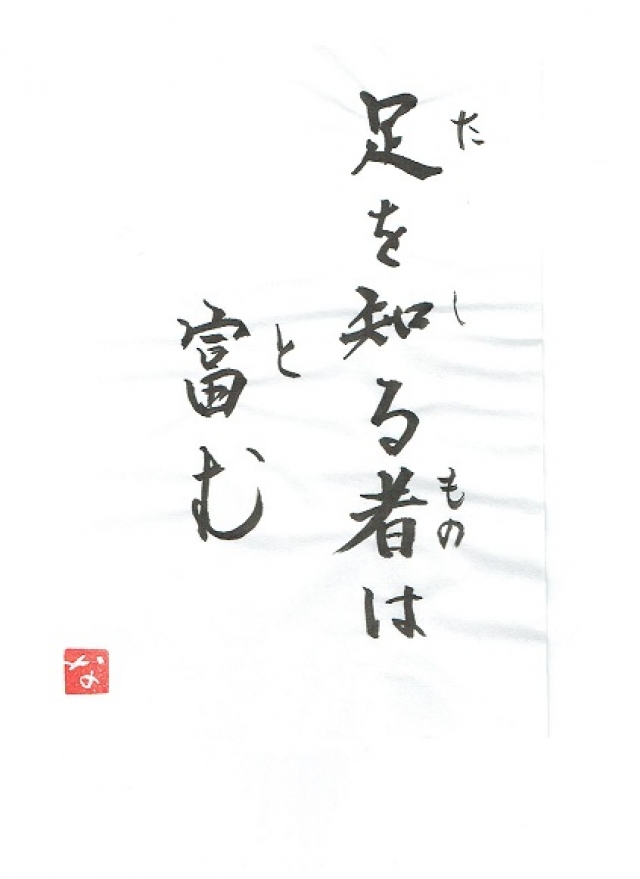 足を知る者は
た
し
もの
富む
と
な